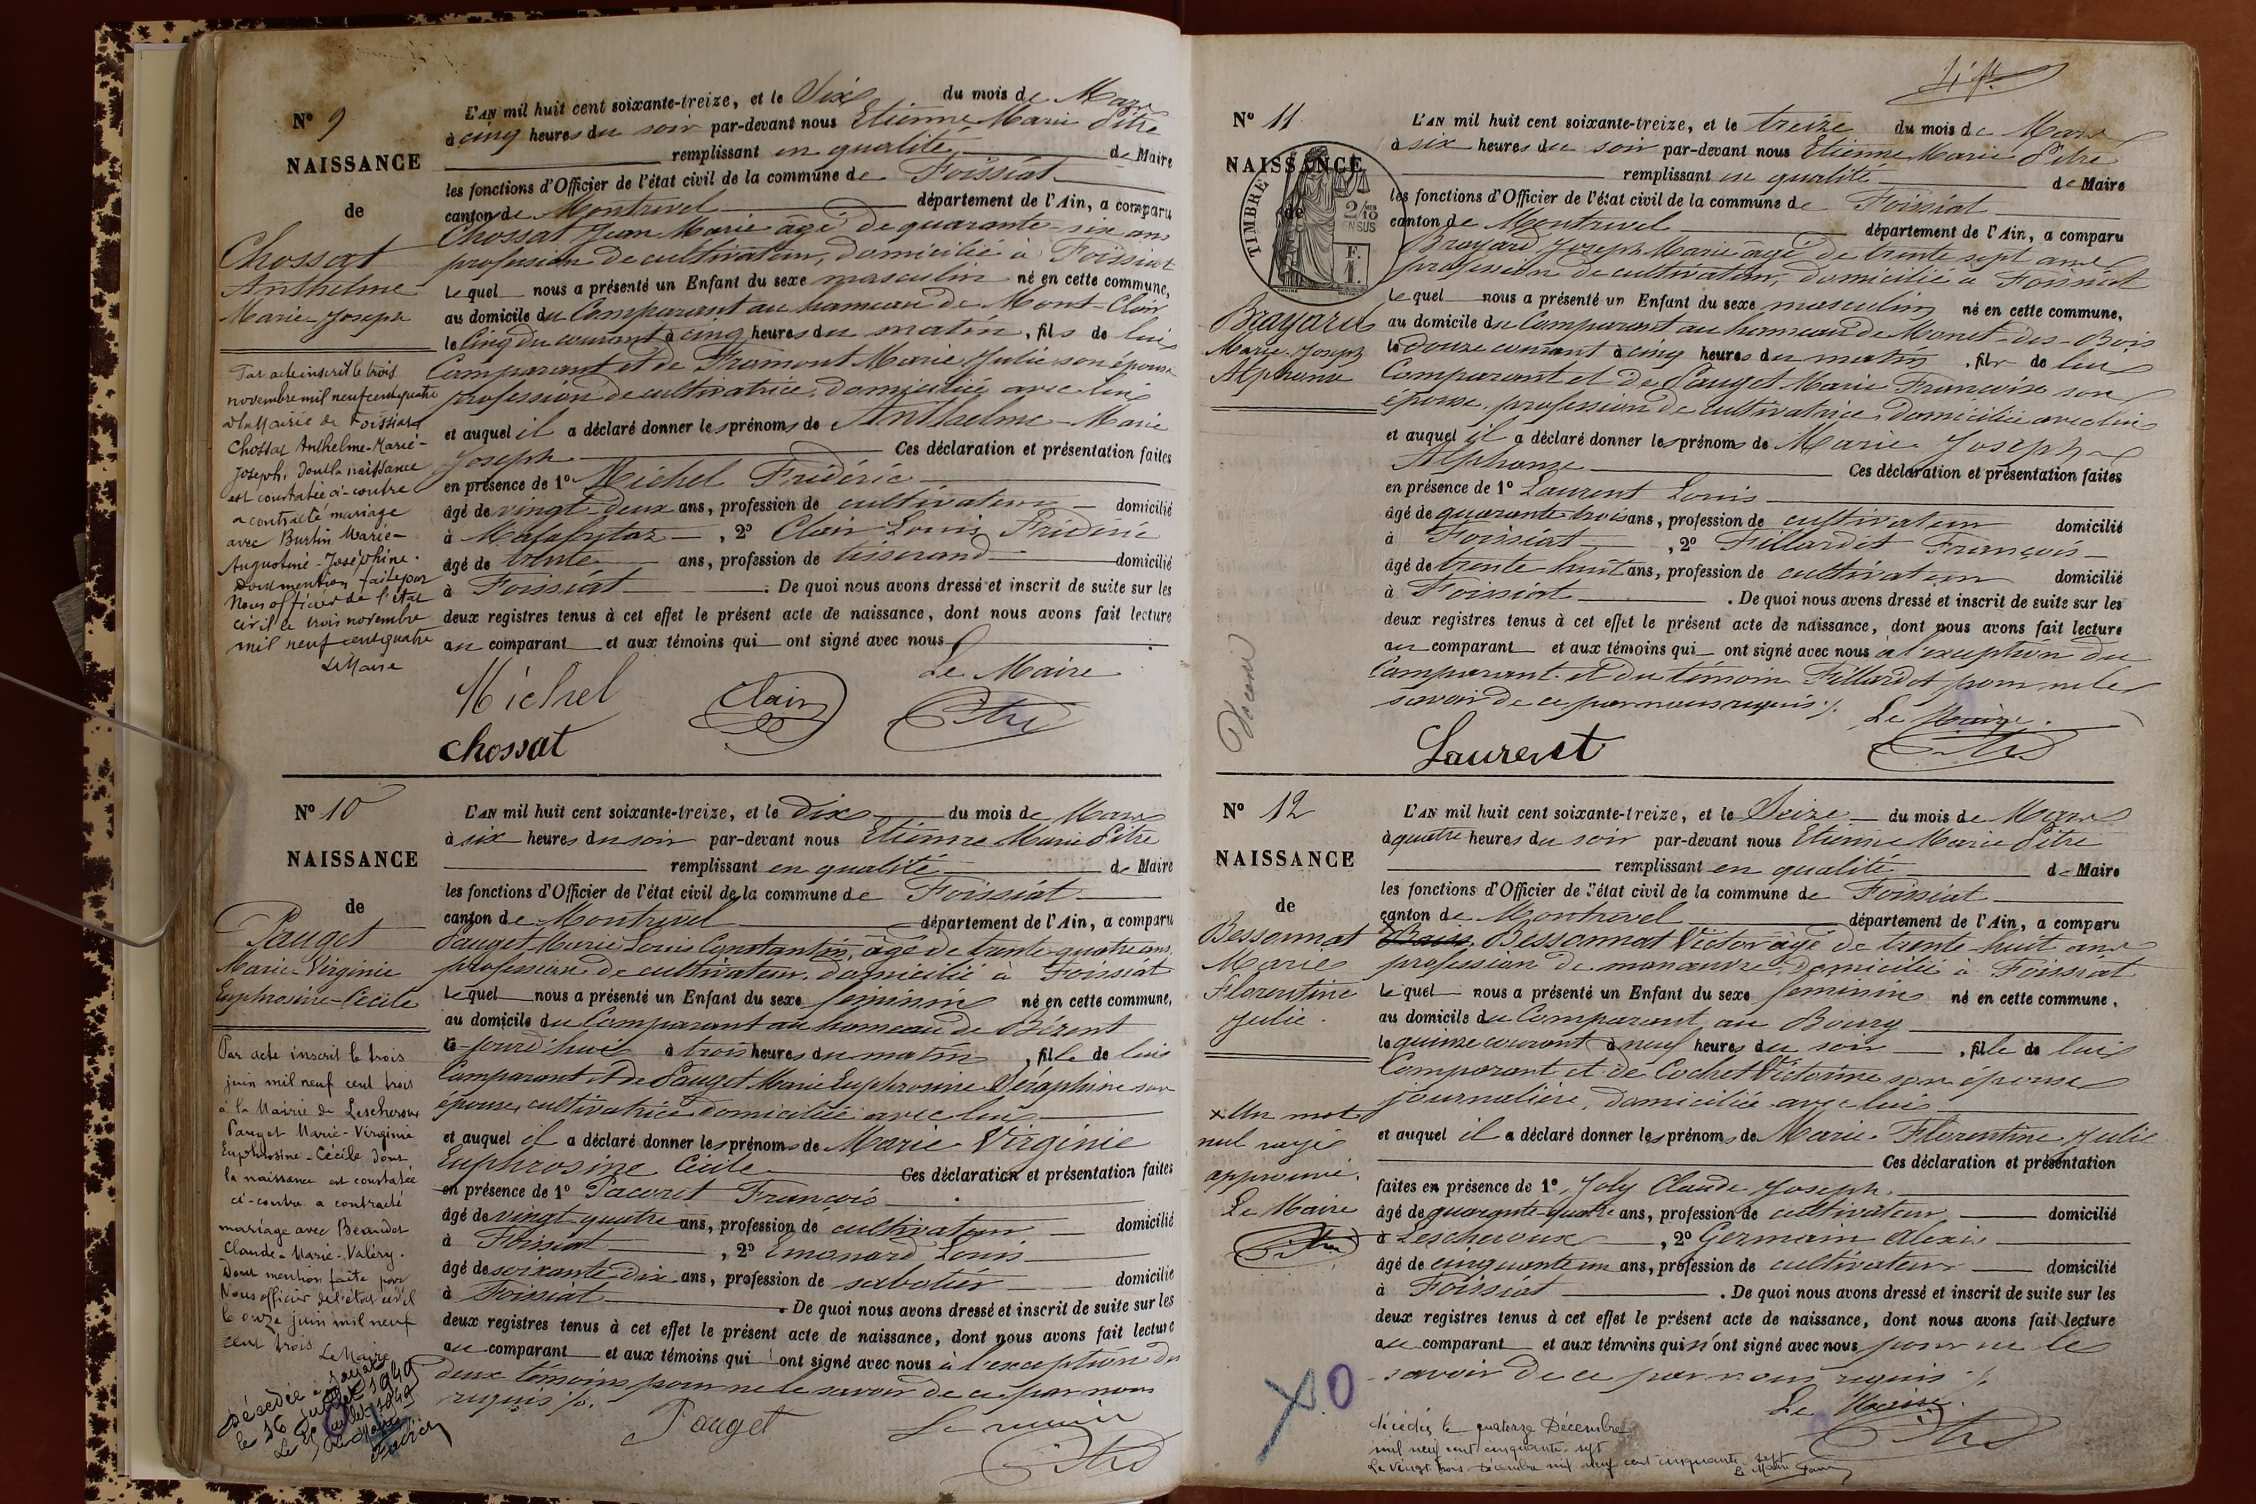 N° 9
NAISSANCE
de
Chossat
Anthelme
Marie Joseph
Par acte inscrit le trois
novembre mil neuf cent quatre
à la Mairie de Foissiat
Chossat Anthelme-Marie-
Joseph, dont la naissance
est constatée ci-contre
a contracté mariage
avec Burtin Marie-
Augustine-Joséphine.
Dont mention faite par
Nous officier de l'état
civil ce trois novembre
mil neuf cent quatre
Le Maire
L'AN mil huit cent soixante-treize, et le Six du mois de Mars
à cinq heures du soir par-devant nous Etienne Marie Pitre
remplissant en qualité de Maire
les fonctions d'Officier de l'état civil de la commune de Foissiat
canton de Montrevel département de l'Ain, a comparu
Chossat Jean Marie âgé de quarante-six ans
profession de cultivateur, domicilié à Foissiat
Lequel nous a présenté un Enfant du sexe masculin né en cette commune,
au domicile du Comparant au hameau de Mont-Clair
le Cinq du courant à cinq heures du matin, fils de lui
Comparant et de Fromont Marie Julie son épouse
profession de cultivatrice, domiciliée avec lui
et auquel il a déclaré donner les prénoms de Anthelme Marie
Joseph Ces déclaration et présentation faites
en présence de 1° Michel Frédéric
âgé de vingt-deux ans, profession de cultivateur domicilié
à Malafretaz, 2° Clair Louis Frédéric
âgé de trente ans, profession de tisserand domicilié
à Foissiat. De quoi nous avons dressé et inscrit de suite sur les
deux registres tenus à cet effet le présent acte de naissance, dont nous avons fait lecture
au comparant et aux témoins qui ont signé avec nous
Le Maire
Michel Clair Pitre
Chossat
N° 10
NAISSANCE
de
Pauget
Marie-Virginie
Euphrosine-Cécile
Par acte inscrit le trois
juin mil neuf cent trois
à la Mairie de Lescheroux
Pauget Marie-Virginie
Euphrosine-Cécile dont
la naissance est constatée
ci-contre a contracté
mariage avec Beaudet
Claude-Marie-Valéry.
Dont mention faite par
Nous officier de l'état civil
le onze juin mil neuf
cent trois
Le Maire
Décédée à
le 16 juillet 1949
L'AN mil huit cent soixante-treize, et le dix du mois de Mars
à six heures du soir par-devant nous Etienne Marie Pitre
remplissant en qualité de Maire
les fonctions d'Officier de l'état civil de la commune de Foissiat
canton de Montrevel département de l'Ain, a comparu
Pauget Marie Louis Constantin, âgé de trente-quatre ans
profession de cultivateur, domicilié à Foissiat
Lequel nous a présenté un Enfant du sexe féminin né en cette commune,
au domicile du Comparant au hameau de Bézent
le jourd'hui à trois heures du matin, fille de lui
Comparant et de Pauget Marie Euphrosine Séraphine son
épouse, cultivatrice domiciliée avec lui
et auquel il a déclaré donner les prénoms de Marie Virginie
Euphrosine Cécile Ces déclaration et présentation faites
en présence de 1° Pacoret François
âgé de vingt quatre ans, profession de cultivateur domicilié
à Foissiat, 2° Emonard Louis
âgé de soixante dix ans, profession de sabotier domicilié
à Foissiat. De quoi nous avons dressé et inscrit de suite sur les
deux registres tenus à cet effet le présent acte de naissance, dont nous avons fait lecture
au comparant et aux témoins qui ont signé avec nous à l'exception des
deux témoins pour ne le savoir de ce par nous
requis ./.
Pauget Le maire
Pitre
N° 11
NAISSANCE
de
TIMBRE
Brayard
Marie Joseph
Alphonse
L'AN mil huit cent soixante-treize, et le treize du mois de Mars
à six heures du soir par-devant nous Etienne Marie Pitre
remplissant en qualité de Maire
les fonctions d'Officier de l'état civil de la commune de Foissiat
canton de Montrevel département de l'Ain, a comparu
Brayard Joseph Marie âgé de trente sept ans
profession de cultivateur, domicilié à Foissiat
Lequel nous a présenté un Enfant du sexe masculin né en cette commune,
au domicile du Comparant au hameau de Monet-des-Bois
le douze courant à cinq heures du matin, fils de lui
Comparant et de Pauget Marie Françoise son
épouse, profession de cultivatrice, domiciliée avec lui
et auquel il a déclaré donner les prénoms de Marie Joseph
Alphonse Ces déclaration et présentation faites
en présence de 1° Laurent Louis
âgé de quarante trois ans, profession de cultivateur domicilié
à Foissiat, 2° Fillardet François
âgé de trente huit ans, profession de cultivateur domicilié
à Foissiat. De quoi nous avons dressé et inscrit de suite sur les
deux registres tenus à cet effet le présent acte de naissance, dont nous avons fait lecture
au comparant et aux témoins qui ont signé avec nous à l'exception du
Comparant et du témoin Fillardet pour ne le
savoir de ce par nous requis ./.
Le Maire.
Laurent Pitre
N° 12
NAISSANCE
de
Bessonnat
Marie
Florentine
Julie.
x Un mot
nul rayé
approuvé.
Le Maire
Pitre
L'AN mil huit cent soixante-treize, et le Seize du mois de Mars
à quatre heures du soir par-devant nous Etienne Marie Pitre
remplissant en qualité de Maire
les fonctions d'Officier de l'état civil de la commune de Foissiat
canton de Montrevel département de l'Ain, a comparu
Bessonnat Victor âgé de trente-huit ans
profession de manœuvre, domicilié à Foissiat
Lequel nous a présenté un Enfant du sexe féminin né en cette commune,
au domicile du Comparant au Bourg
le quinze courant à neuf heures du soir, fille de lui
Comparant et de Cochet Victorine son épouse
journalière, domiciliée avec lui
et auquel il a déclaré donner les prénoms de Marie Florentine Julie
Ces déclaration et présentation
faites en présence de 1° Joly Claude Joseph
âgé de quarante-quatre ans, profession de cultivateur domicilié
à Lescheroux, 2° Germain Alexis
âgé de cinquante un ans, profession de cultivateur domicilié
à Foissiat. De quoi nous avons dressé et inscrit de suite sur les
deux registres tenus à cet effet le présent acte de naissance, dont nous avons fait lecture
au comparant et aux témoins qui n'ont signé avec nous pour ne le
savoir de ce par nous requis ./.
Le Maire.
Pitre
décédée le quatorze Décembre
mil neuf cent cinquante-sept
Le vingt trois Décembre mil neuf cent cinquante sept
Le Maire